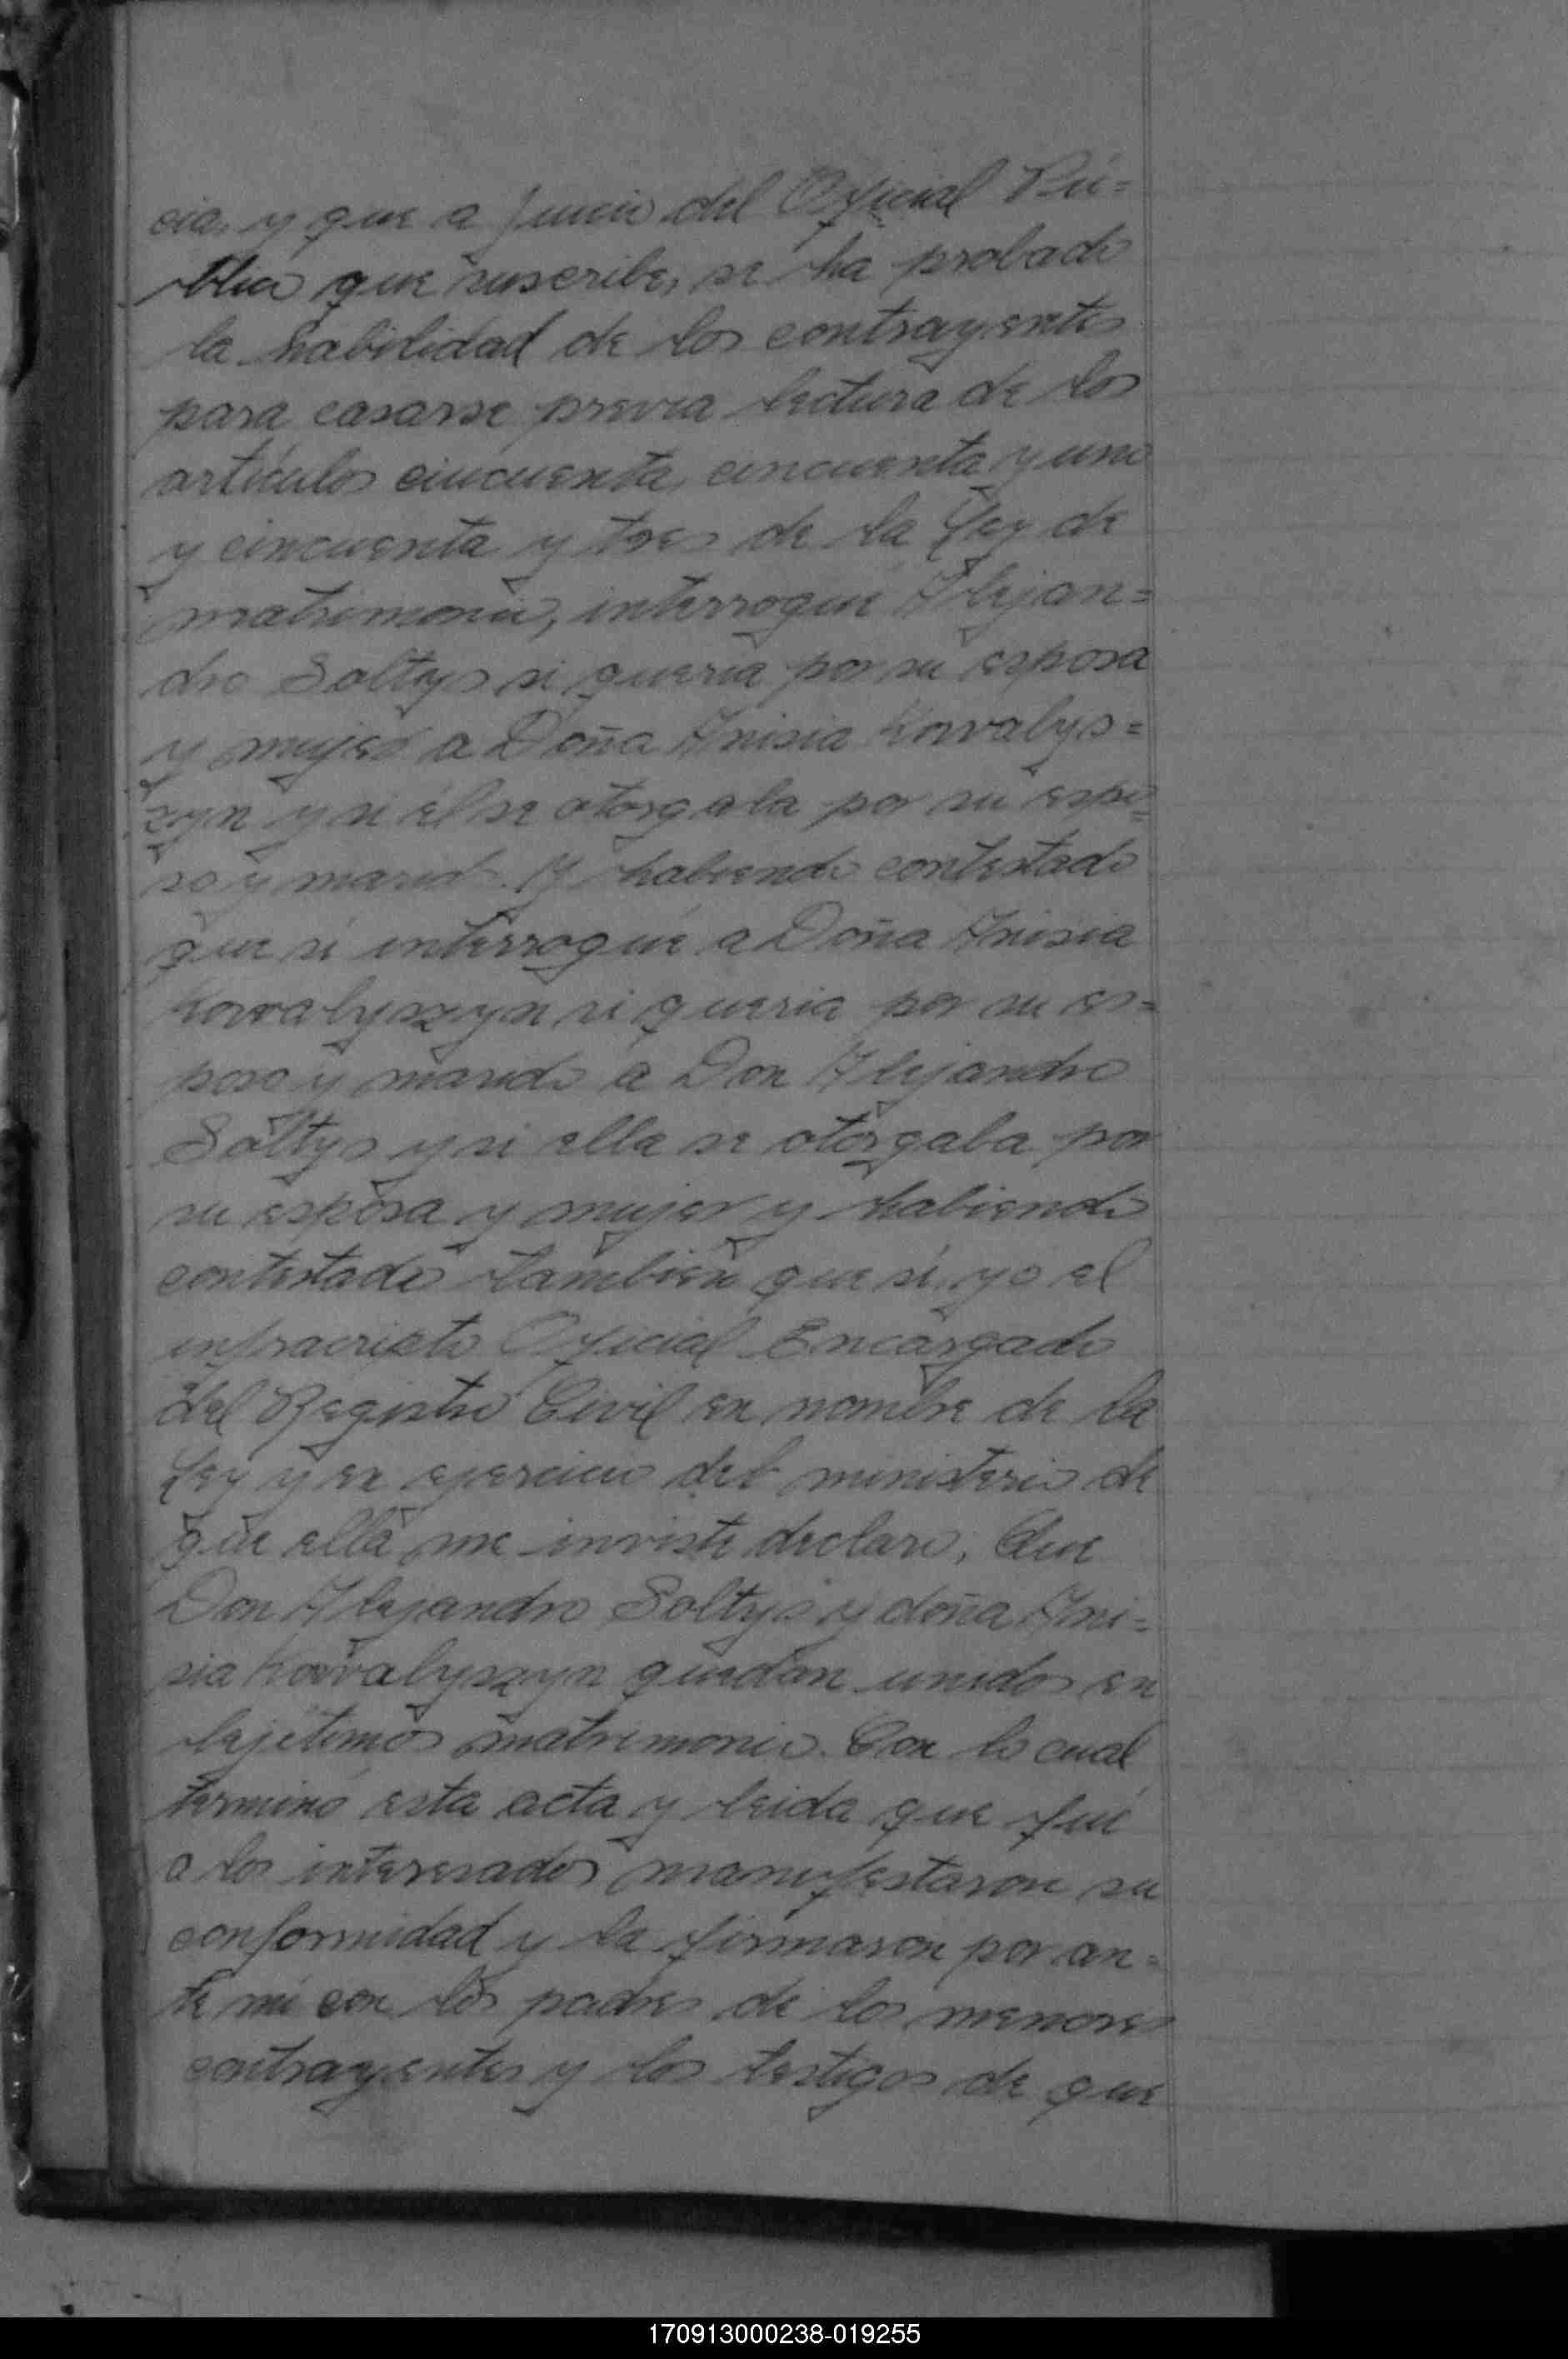 cia, y que a juicio del Oficial Pú=
blico que suscribe, se ha probado
la habilidad de los contrayentes
para casarse previa lectura de los
artículos cincuenta, cincuenta y uno
y cincuenta y tres de la Ley de
matrimonio, interrogué Alejan=
dro Soltys si quería por su esposa
y mujer a Doña Anisia Kowalys=
zyn y si él se otorgaba por su espo=
so y marido. Y habiendo contestado
que sí interrogué a Doña Anisia
Kowalyszyn si queria por su es=
poso y marido a Don Alejandro
Soltys y si ella se otorgaba por
su esposa y mujer y habiendo
contestado también que sí, yo el
infracripto Oficial Encargado
del Registro Civil en nombre de la
Ley y en ejercicio del ministerio de
que ella me inviste declaro, Que
Don Alejandro Soltys y doña Ani=
sia Kowalyszyn quedan unidos en
lejítimo matrimonio. Con lo cual
terminó esta acta y leida que fué
a los interesados manifestaron su
conformidad y la firmaron por an=
te mí con los padres de los menores
contrayentes y los testigos de que
170913000238-019255